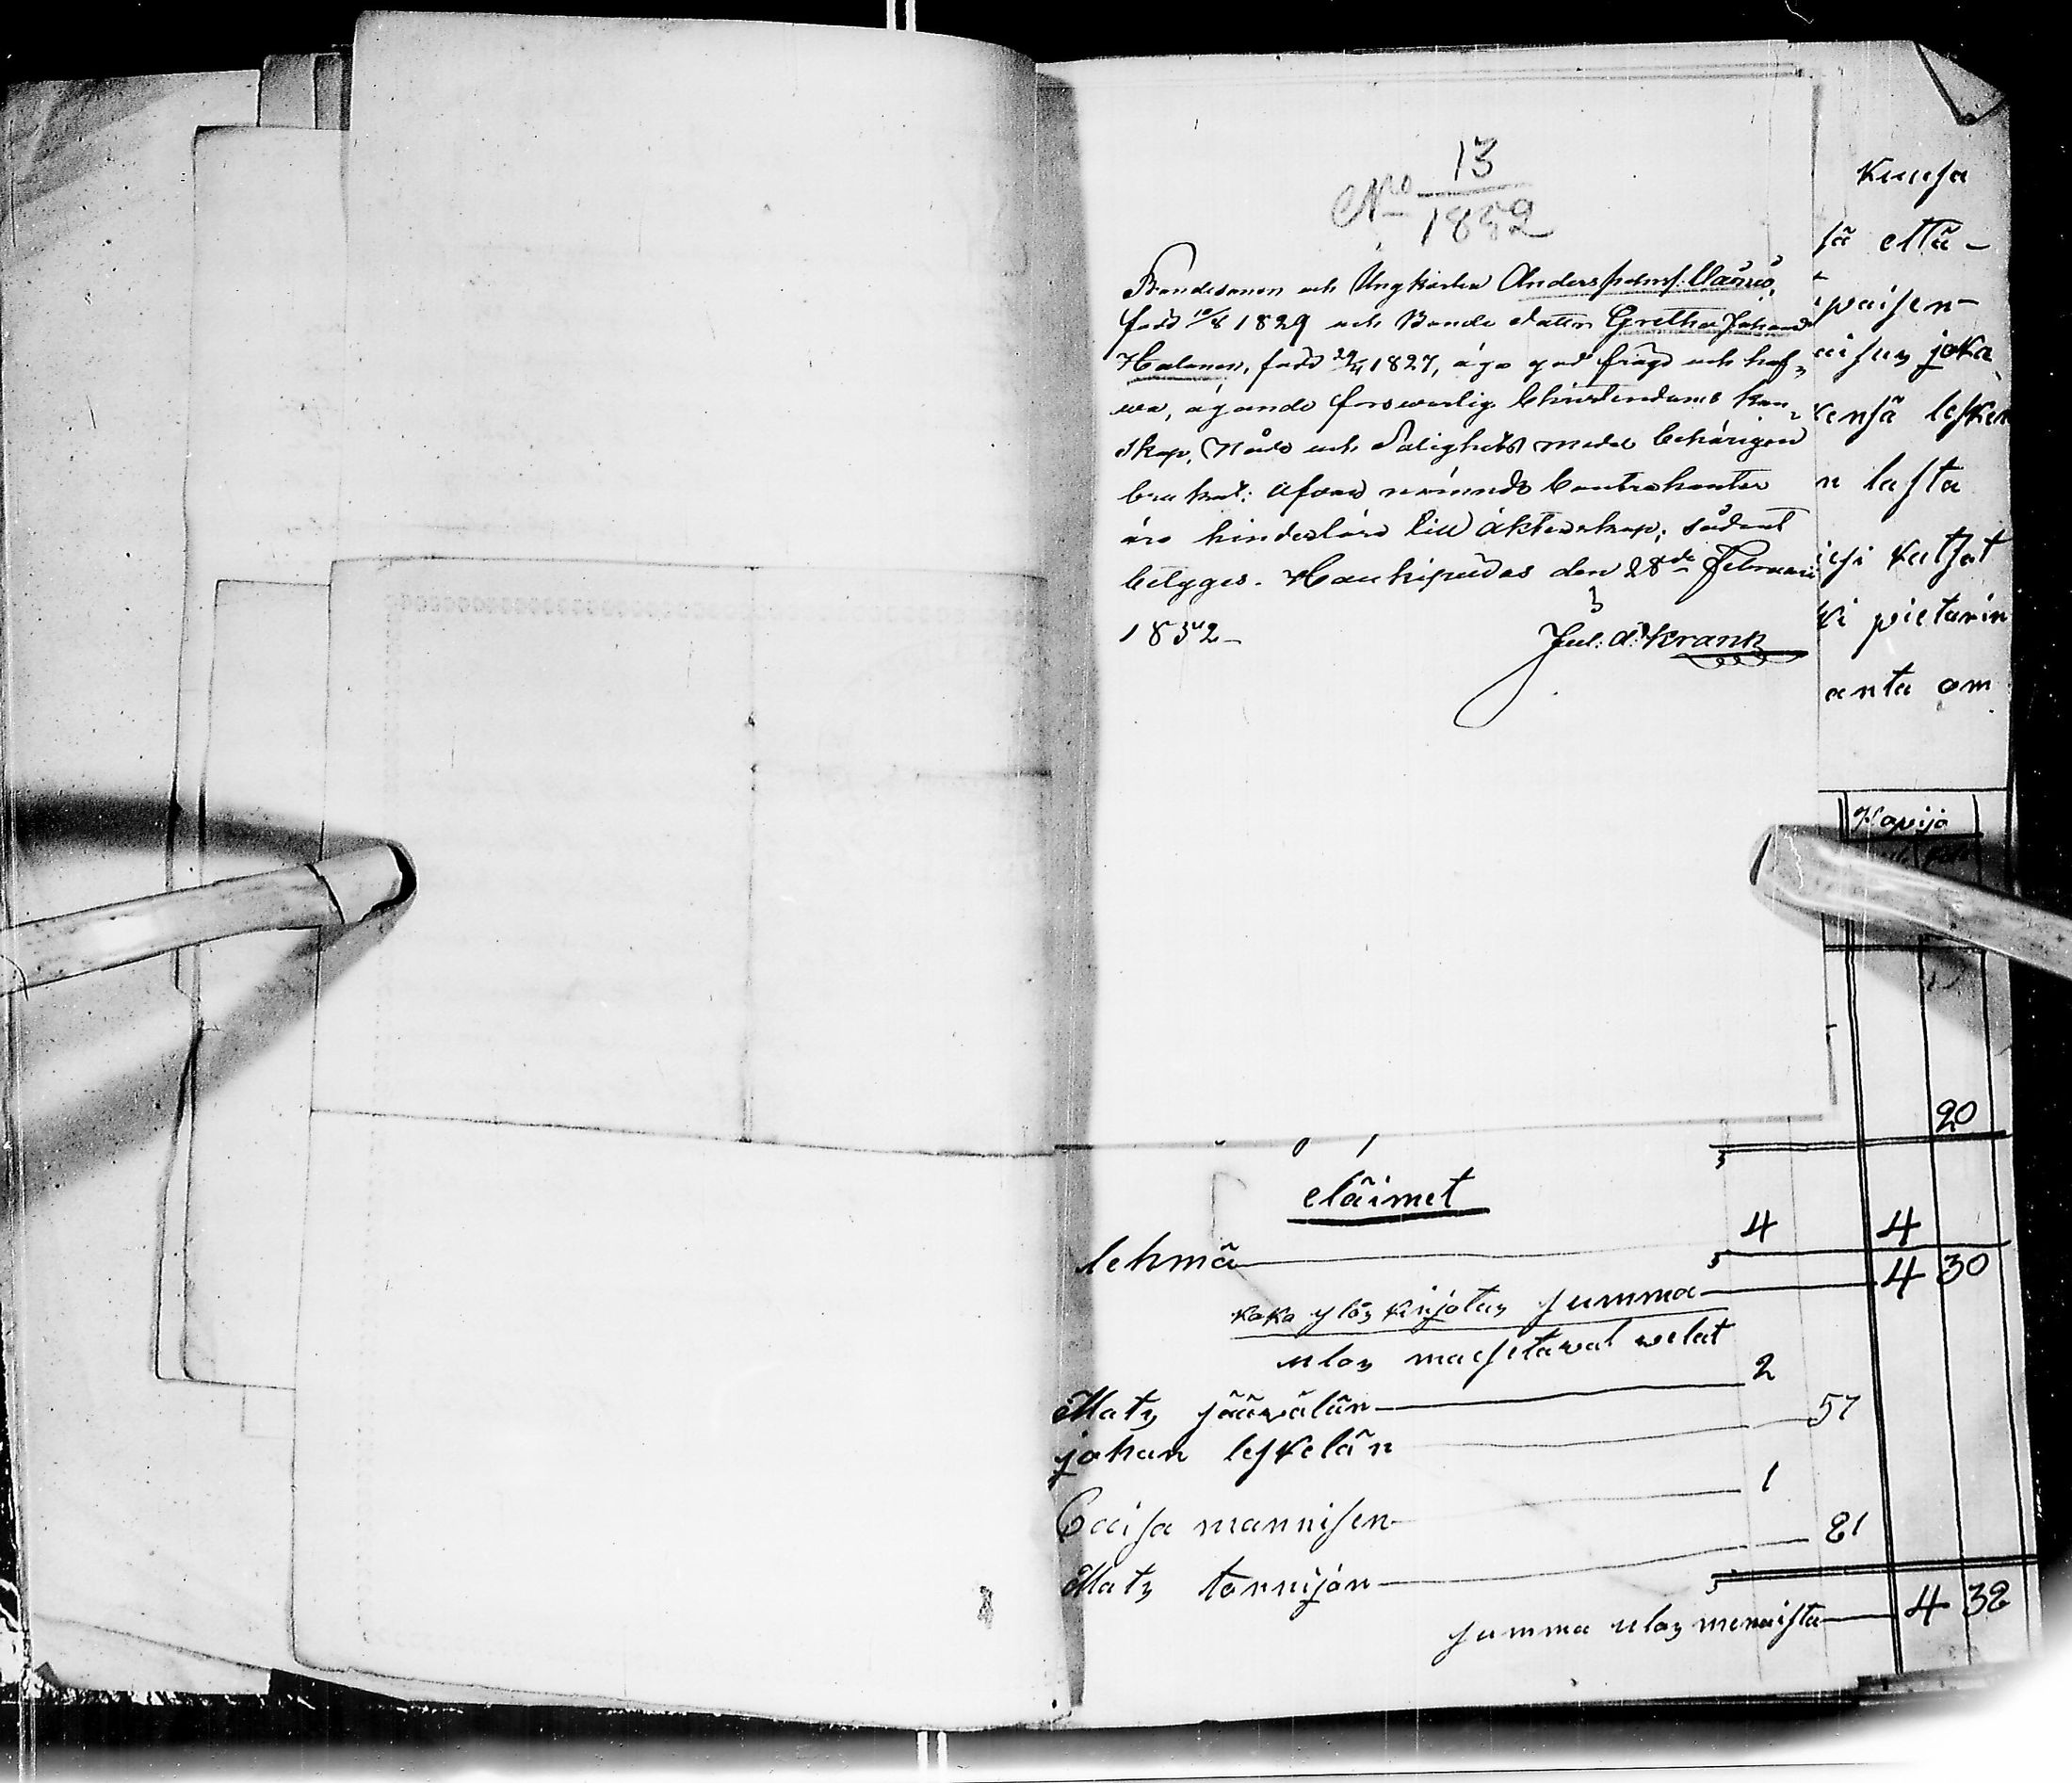 No 13
1852
Bondesonen och Ungkarlen Anders
född 10/8 1829 och Bonde dattern Gretha Johansdr
Halonen, född 29/4 1827, äga god frägd och haf-
wa, ägande forswarlig Christendoms kun-
skap, Nåde och Salighets medel behörigen
brukat; afwen nämnde Contrahenter
äro hinderlöse till äktenskap; sådant
betygas. Haukipudas den 28de Februarii
1852
Jul. A. Krank
kuusa
sä että-
paisen
aisen joka
kensä lesken
n lasta
katsot
ki pietarin
anta om
Kopeija
20
eläimet
lehmä 4 4
koko ylös kirjotus summa 4 30
ulos maesettavat welat
Mats jääwälän 2
johan leskelän 57
Caisa mannisen 1
Mats tornijon 81
summa ulos menoista 4 38